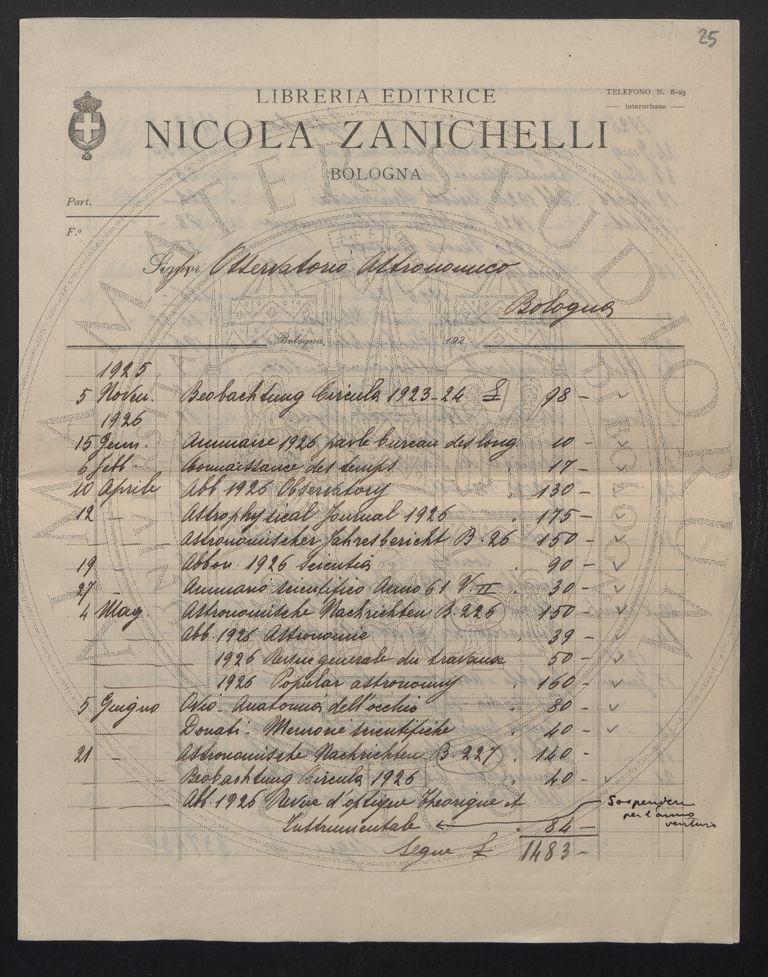 25
LIBRERIA EDITRICE
TELEFONO N. 8-23
interurbano
NICOLA ZANICHELLI
BOLOGNA
Part.
F.º
Osservatorio Astronomico
Bologna
Bologna, 192
1925
5 Novem. Beobachtung Circular 1923-24 £ 98 -
1926
15 Genn. Annuaire 1926 par le bureau des long 10 -
6 Febb. Connaissance des temps 17 -
10 Aprile Abb 1926 Observatory 130 -
12 - Astrophysical Journal 1926 175 -
Astronomischer Jahresbericht B. 26 150 -
19 - Abbon. 1926 Scientia 90 -
27 Annuario scientifico Anno 61 V. II 30 -
4 Mag. Astronomische Nachrichten B. 226 150 -
Abb. 1926 Astronomie 39 -
1926 Revue generale du travaux 50 -
1926 Popular astronomy 160 -
5 Giugno Ovio - Anatomia dell'occhio 80 -
Donati - Memorie scientifiche 40 -
21 - Astronomische Nachrichten B. 227 140 -
Beobachtung Circula 1926 40 -
Abb. 1926 Revue d'optique theorique et
Instrumentale 84 -
Sospendere
per l'anno
venturo
Segue £ 1483 -
ALMA MATER STUDIORUM